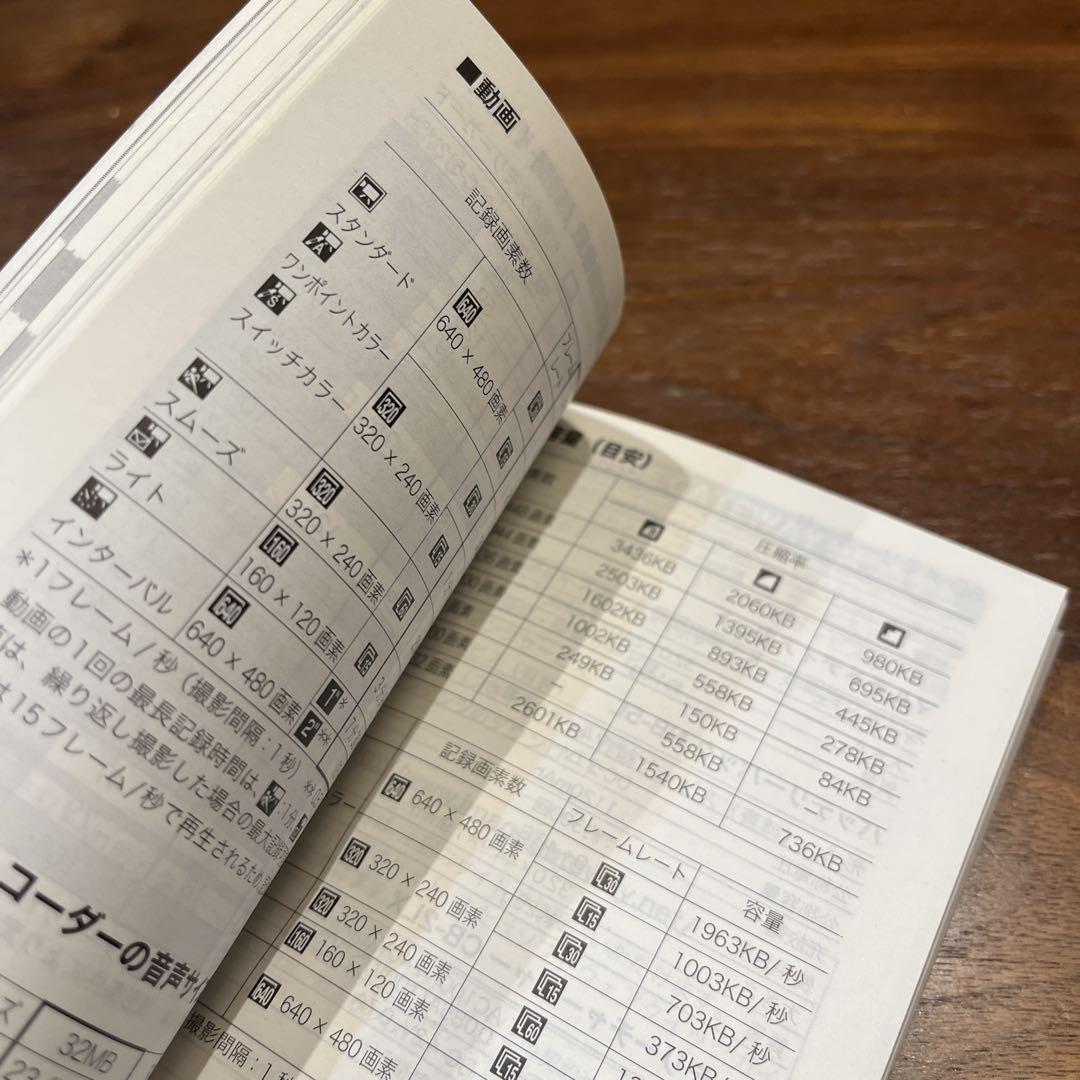 ■動画
記録画素数
スタンダード
ワンポイントカラー
スイッチカラー
640
640 × 480画素
320
320 × 240画素
スムーズ
320
320 × 240画素
ライト
160
160 × 120画素
インターバル
640
640 × 480画素
1*
2**
*1フレーム/秒(撮影間隔:1秒)
動画の1回の最長記録時間は、
は、繰り返し撮影した場合の最大記
は15フレーム/秒で再生されるため
コーダーの音声サイ
ズ
32MB
23
(目安)
圧縮率
3436KB
2060KB
980KB
2503KB
1395KB
695KB
1602KB
893KB
445KB
1002KB
558KB
278KB
249KB
150KB
84KB
–
558KB
–
2601KB
1540KB
736KB
記録画素数
フレームレート
容量
ラー
640
640 × 480画素
30
1963KB/秒
15
1003KB/秒
320
320 × 240画素
30
703KB/秒
15
373KB/秒
320
320 × 240画素
60
160
160 × 120画素
15
640
640 × 480画素
撮影間隔:1秒